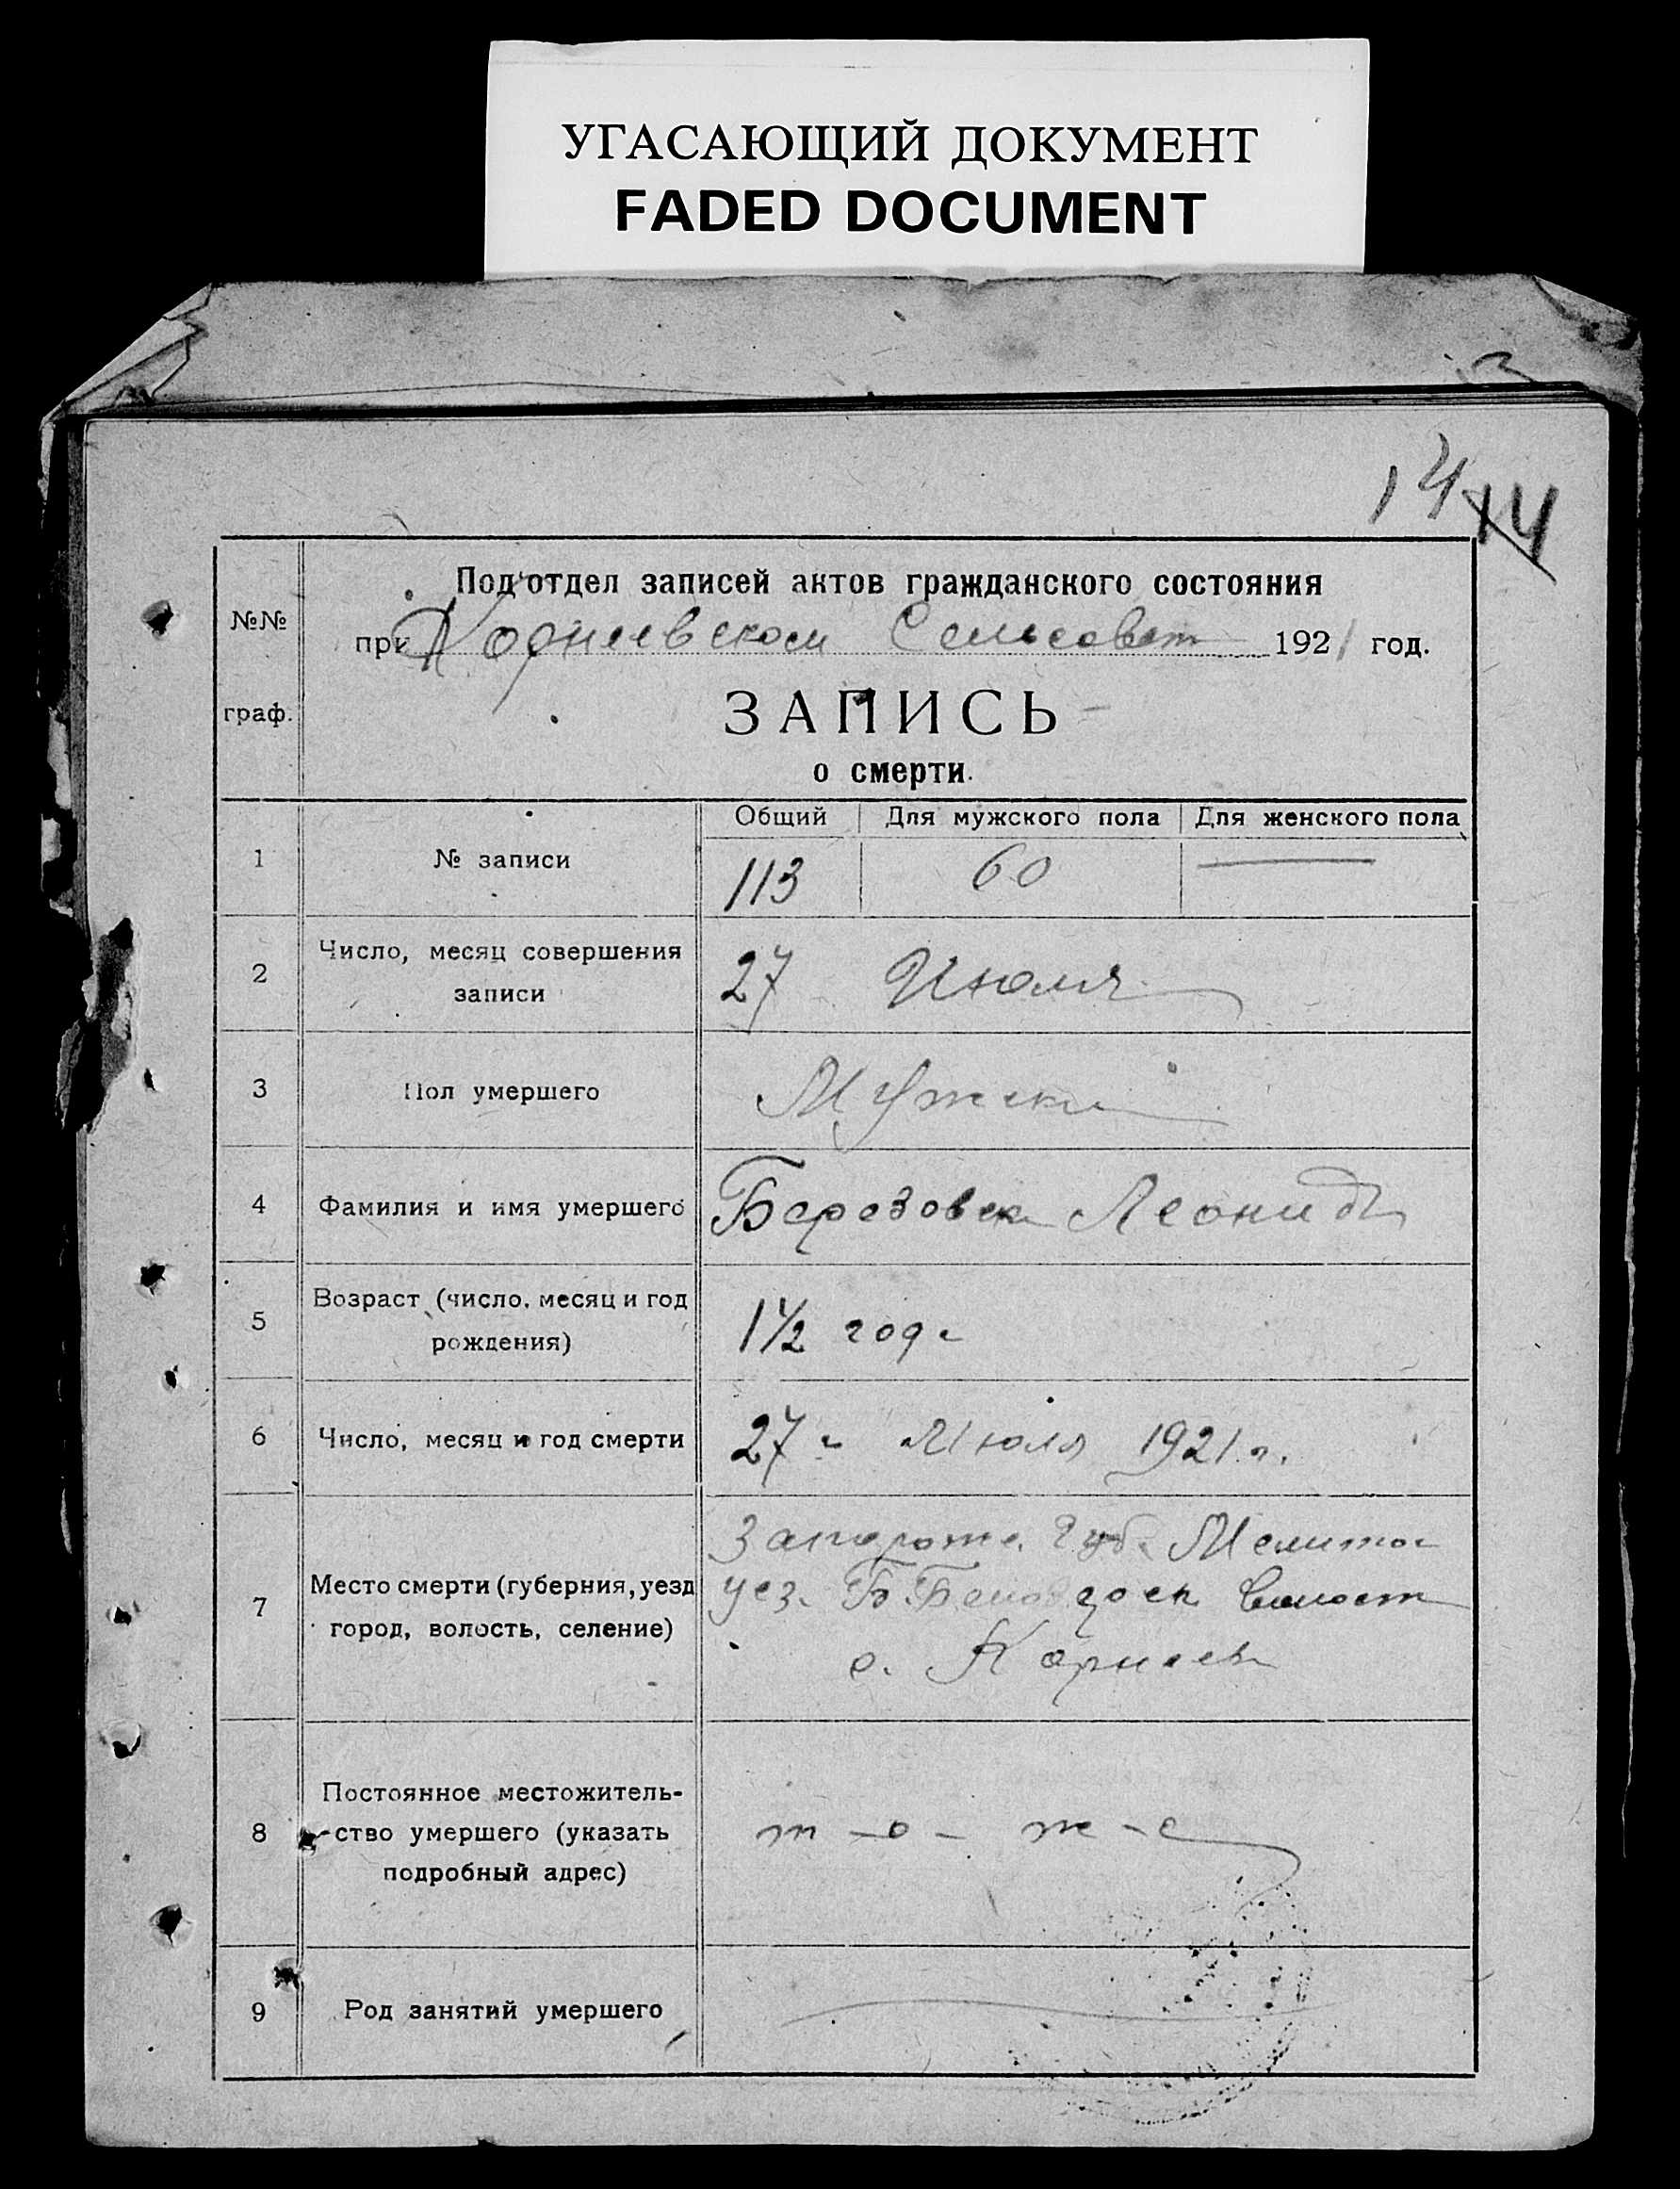 УГАСАЮЩИЙ ДОКУМЕНТ
FADED DOCUMENT
14 14
Подотдел записей актов гражданского состояния
№№ граф.
при Корнеевском Сельсовет 1921 год.
ЗАПИСЬ
о смерти.
Общий Для мужского пола Для женского пола
1 № записи 113 60
2 Число, месяц совершения
записи 27 Июля
3 Пол умершего Мужски
4 Фамилия и имя умершего Березовск Леонид
5 Возраст (число, месяц и год
рождения) 1½ года
6 Число, месяц и год смерти 27 Июля 1921 г.
7 Место смерти (губерния, уезд
город, волость, селение)
Запорож. Губ. Мелитоп
уез. Б. Волост
с. Корнеев
8 Постоянное местожитель-
ство умершего (указать
подробный адрес)
т-о- ж-е
9 Род занятий умершего